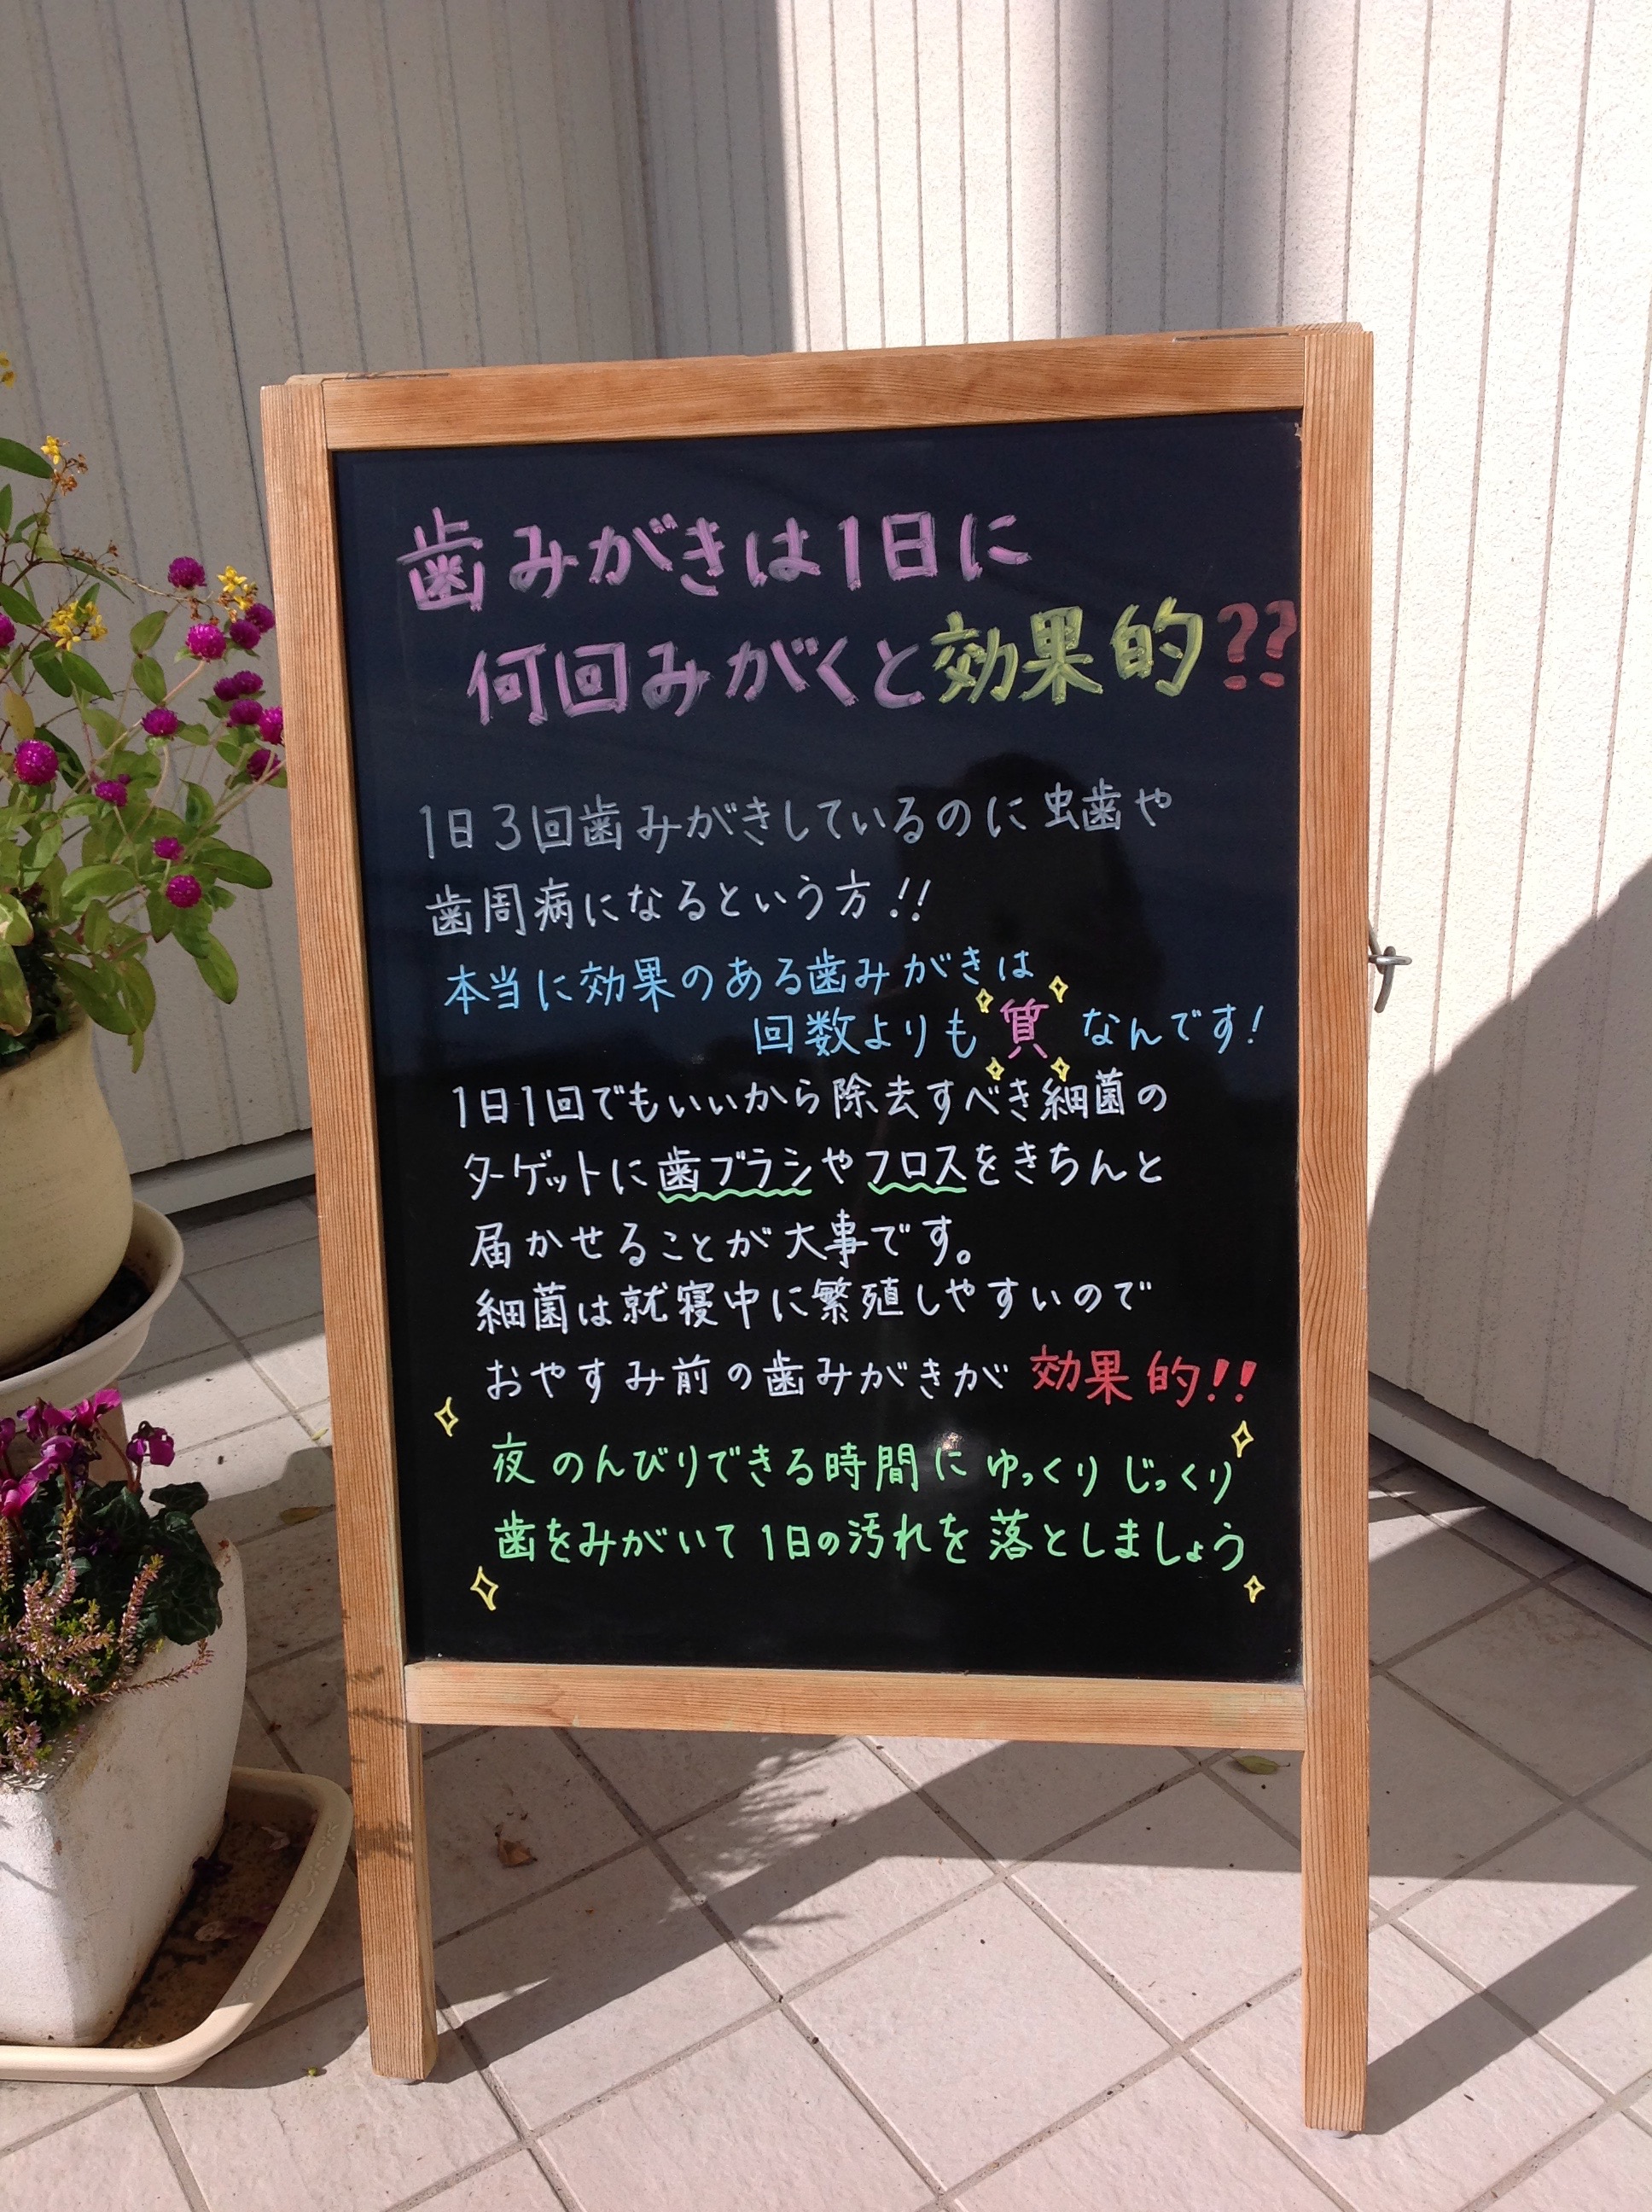 歯みがきは1日に
何回みがくと効果的??
1日3回歯みがきしているのに虫歯や
歯周病になるという方!!
本当に効果のある歯みがきは
回数よりも質なんです!
1日1回でもいいから除去すべき細菌の
ターゲットに歯ブラシやフロスをきちんと
届かせることが大事です。
細菌は就寝中に繁殖しやすいので
おやすみ前の歯みがきが効果的!!
夜のんびりできる時間にゆっくりじっくり
歯をみがいて1日の汚れを落としましょう